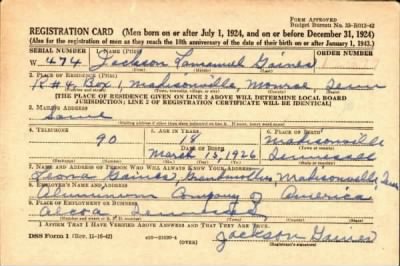 FORM APPROVED
REGISTRATION CARD (Men born on or after July 1, 1924, and on or before December 31, 1924)
(Also for the registration of men as they reach the 18th anniversary of the date of their birth on or after January 1, 1943.)
SERIAL NUMBER 1. NAME (Print) ORDER NUMBER
W 474 Jackson Gaines
2. PLACE OF RESIDENCE (Print)
R #4 Box 1, Madisonville, Monroe Tenn
[THE PLACE OF RESIDENCE GIVEN ON LINE 2 ABOVE WILL DETERMINE LOCAL BOARD
JURISDICTION; LINE 2 OF REGISTRATION CERTIFICATE WILL BE IDENTICAL]
3. MAILING ADDRESS
Same
4. TELEPHONE 5. AGE IN YEARS 6. PLACE OF BIRTH
90 18 Madisonville
DATE OF BIRTH
March 1926 Tennessee
7. NAME AND ADDRESS OF PERSON WHO WILL ALWAYS KNOW YOUR ADDRESS
Leona Gaines, Grandmother, Madisonville, Tenn
8. EMPLOYER'S NAME AND ADDRESS
Aluminum Company of America
9. PLACE OF EMPLOYMENT OR BUSINESS
Alcoa
I AFFIRM THAT I HAVE VERIFIED ABOVE ANSWERS AND THAT THEY ARE TRUE.
DSS Form 1 (OVER) Jackson Gaines
(Registrant's signature)